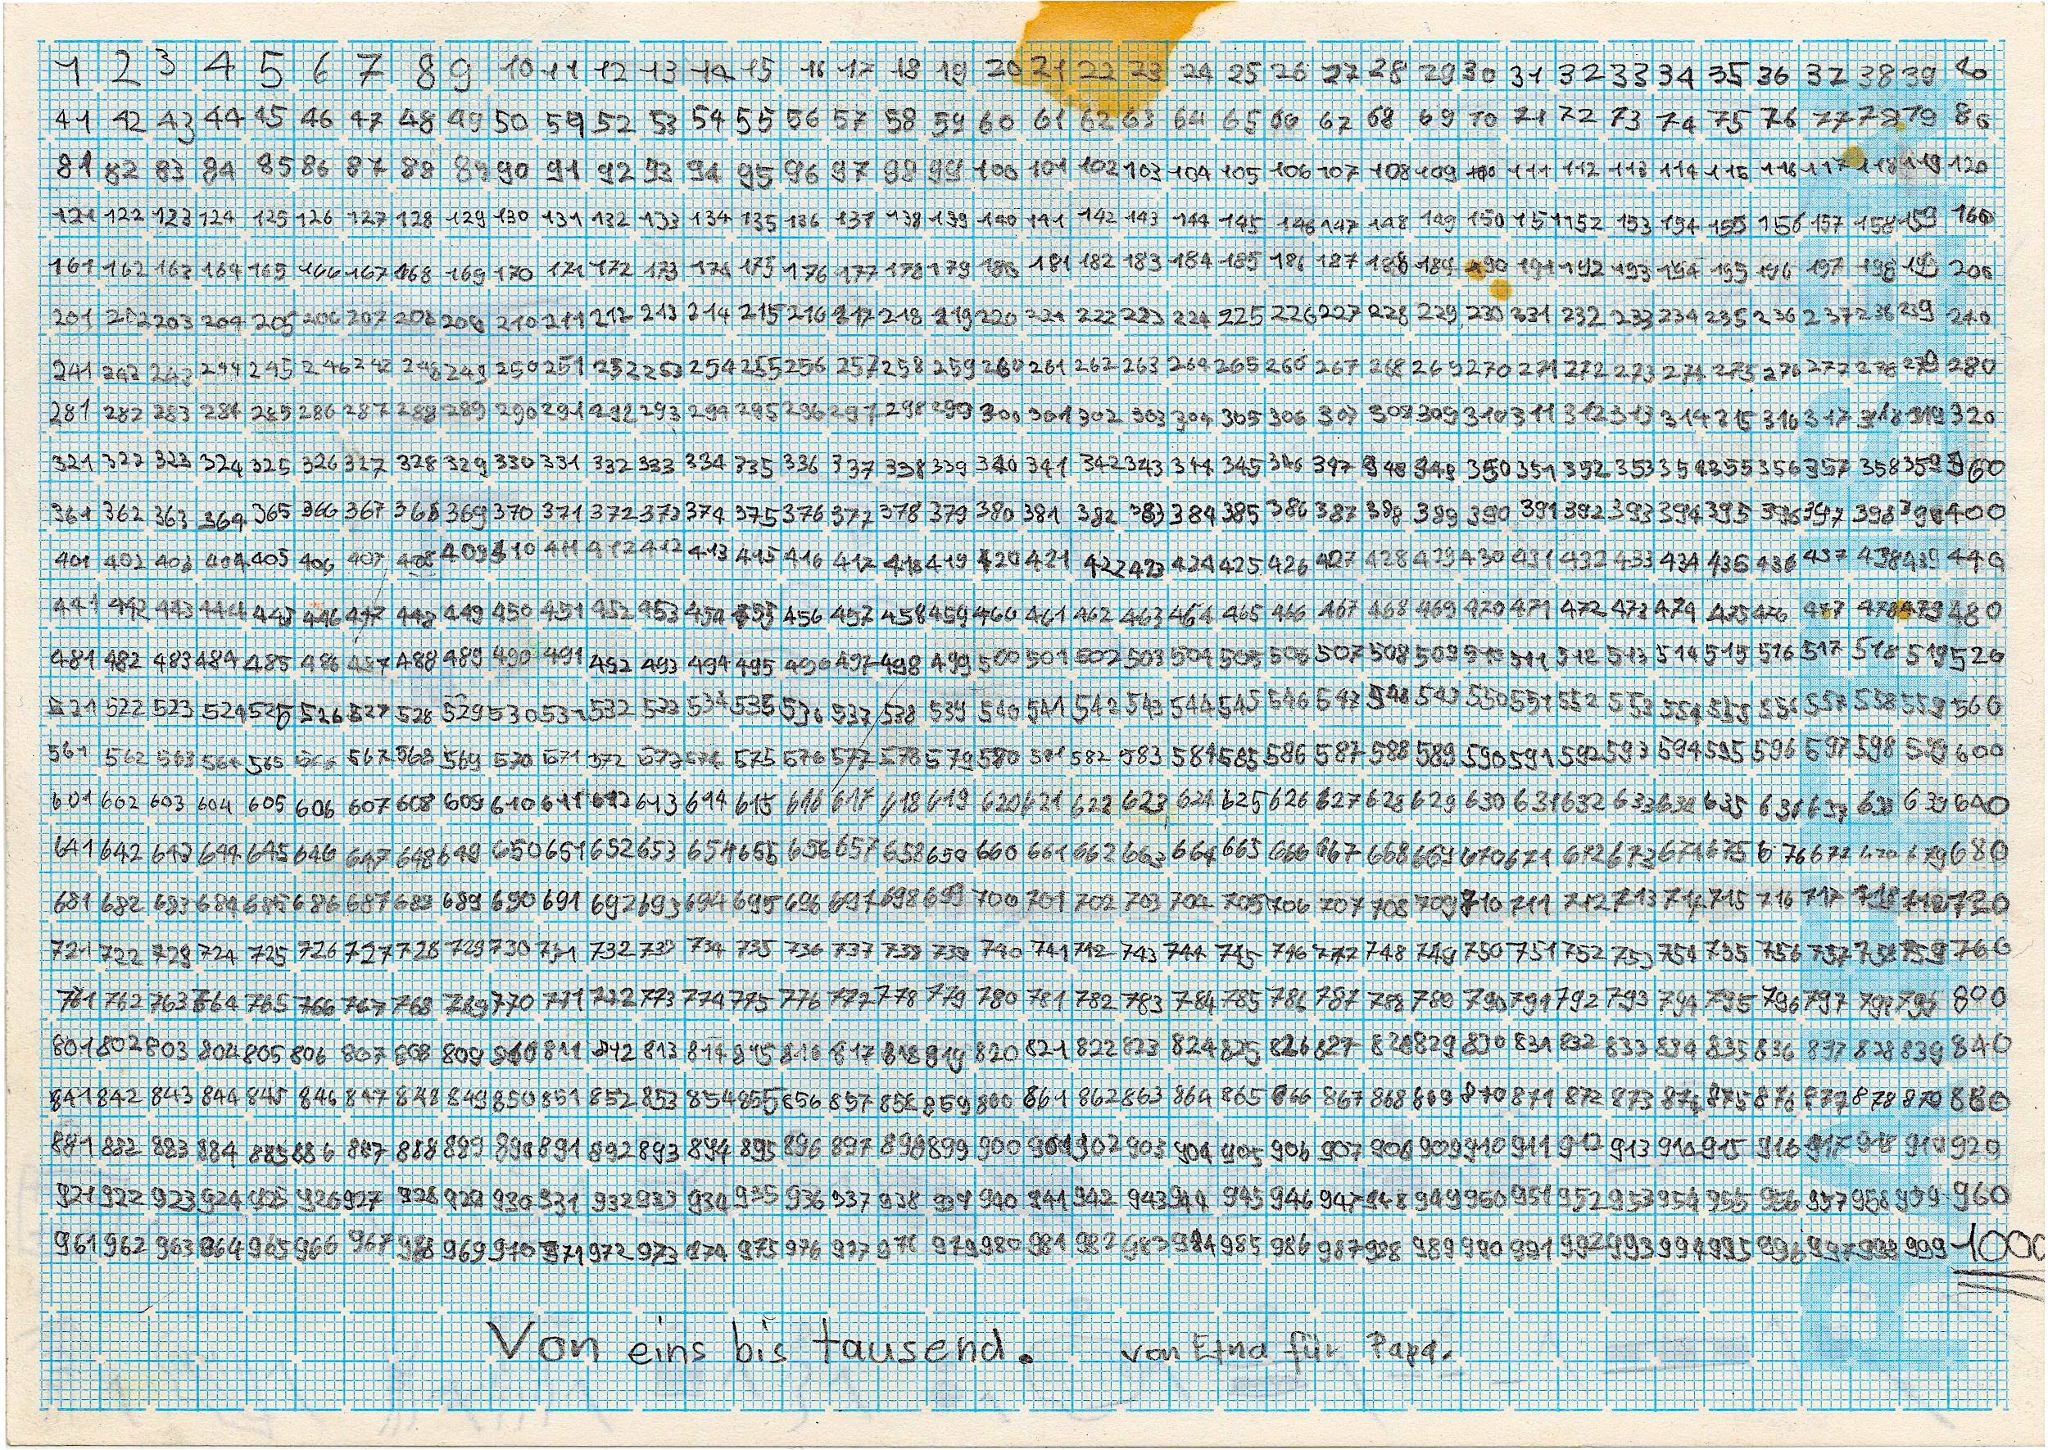 1 2 3 4 5 6 7 8 9 10 11 12 13 14 15 16 17 18 19 20 21 22 23 24 25 26 27 28 29 30 31 32 33 34 35 36 37 38 39 40
41 42 43 44 45 46 47 48 49 50 51 52 53 54 55 56 57 58 59 60 61 62 63 64 65 66 67 68 69 70 71 72 73 74 75 76 77 78 79 80
81 82 83 84 85 86 87 88 89 90 91 92 93 94 95 96 97 98 99 100 101 102 103 104 105 106 107 108 109 110 111 112 113 114 115 116 117 118 119 120
121 122 123 124 125 126 127 128 129 130 131 132 133 134 135 136 137 138 139 140 141 142 143 144 145 146 147 148 149 150 151 152 153 154 155 156 157 158 159 160
161 162 163 164 165 166 167 168 169 170 171 172 173 174 175 176 177 178 179 180 181 182 183 184 185 186 187 188 189 190 191 192 193 194 195 196 197 198 199 200
201 202 203 204 205 206 207 208 209 210 211 212 213 214 215 216 217 218 219 220 221 222 223 224 225 226 227 228 229 230 231 232 233 234 235 236 237 238 239 240
241 242 243 244 245 246 247 248 249 250 251 252 253 254 255 256 257 258 259 260 261 262 263 264 265 266 267 268 269 270 271 272 273 274 275 276 277 278 279 280
281 282 283 284 285 286 287 288 289 290 291 292 293 294 295 296 297 298 299 300 301 302 303 304 305 306 307 308 309 310 311 312 313 314 315 316 317 318 319 320
321 322 323 324 325 326 327 328 329 330 331 332 333 334 335 336 337 338 339 340 341 342 343 344 345 346 347 348 349 350 351 352 353 354 355 356 357 358 359 360
361 362 363 364 365 366 367 368 369 370 371 372 373 374 375 376 377 378 379 380 381 382 383 384 385 386 387 388 389 390 391 392 393 394 395 396 397 398 399 400
401 402 403 404 405 406 407 408 409 410 411 412 412 413 415 416 417 418 419 420 421 422 423 424 425 426 427 428 429 430 431 432 433 434 435 436 437 438 439 440
441 442 443 444 445 446 447 448 449 450 451 452 453 454 455 456 457 458 459 460 461 462 463 464 465 466 467 468 469 470 471 472 473 474 475 476 477 478 479 480
481 482 483 484 485 486 487 488 489 490 491 492 493 494 495 496 497 498 499 500 501 502 503 504 505 506 507 508 509 510 511 512 513 514 515 516 517 518 519 520
521 522 523 524 525 526 527 528 529 530 531 532 533 534 535 536 537 538 539 540 541 542 543 544 545 546 547 548 549 550 551 552 553 554 555 556 557 558 559 560
561 562 563 564 565 566 567 568 569 570 571 572 573 574 575 576 577 578 579 580 581 582 583 584 585 586 587 588 589 590 591 592 593 594 595 596 597 598 599 600
601 602 603 604 605 606 607 608 609 610 611 612 613 614 615 616 617 618 619 620 621 622 623 624 625 626 627 628 629 630 631 632 633 634 635 636 637 638 639 640
641 642 643 644 645 646 647 648 649 650 651 652 653 654 655 656 657 658 659 660 661 662 663 664 665 666 667 668 669 670 671 672 673 674 675 676 677 678 679 680
681 682 683 684 685 686 687 688 689 690 691 692 693 694 695 696 697 698 699 700 701 702 703 704 705 706 707 708 709 710 711 712 713 714 715 716 717 718 719 720
721 722 723 724 725 726 727 728 729 730 731 732 733 734 735 736 737 738 739 740 741 742 743 744 745 746 747 748 749 750 751 752 753 754 755 756 757 758 759 760
761 762 763 764 765 766 767 768 769 770 771 772 773 774 775 776 777 778 779 780 781 782 783 784 785 786 787 788 789 790 791 792 793 794 795 796 797 798 799 800
801 802 803 804 805 806 807 808 809 810 811 812 813 814 815 816 817 818 819 820 821 822 823 824 825 826 827 828 829 830 831 832 833 834 835 836 837 838 839 840
841 842 843 844 845 846 847 848 849 850 851 852 853 854 855 856 857 858 859 860 861 862 863 864 865 866 867 868 869 870 871 872 873 874 875 876 877 878 879 880
881 882 883 884 885 886 887 888 889 890 891 892 893 894 895 896 897 898 899 900 901 902 903 904 905 906 907 908 909 910 911 912 913 914 915 916 917 918 919 920
921 922 923 924 925 926 927 928 929 930 931 932 933 934 935 936 937 938 939 940 941 942 943 944 945 946 947 948 949 950 951 952 953 954 955 956 957 958 959 960
961 962 963 964 965 966 967 968 969 970 971 972 973 974 975 976 977 978 979 980 981 982 983 984 985 986 987 988 989 990 991 992 993 994 995 996 997 998 999 1000
Von eins bis tausend. von Etna für Papa.